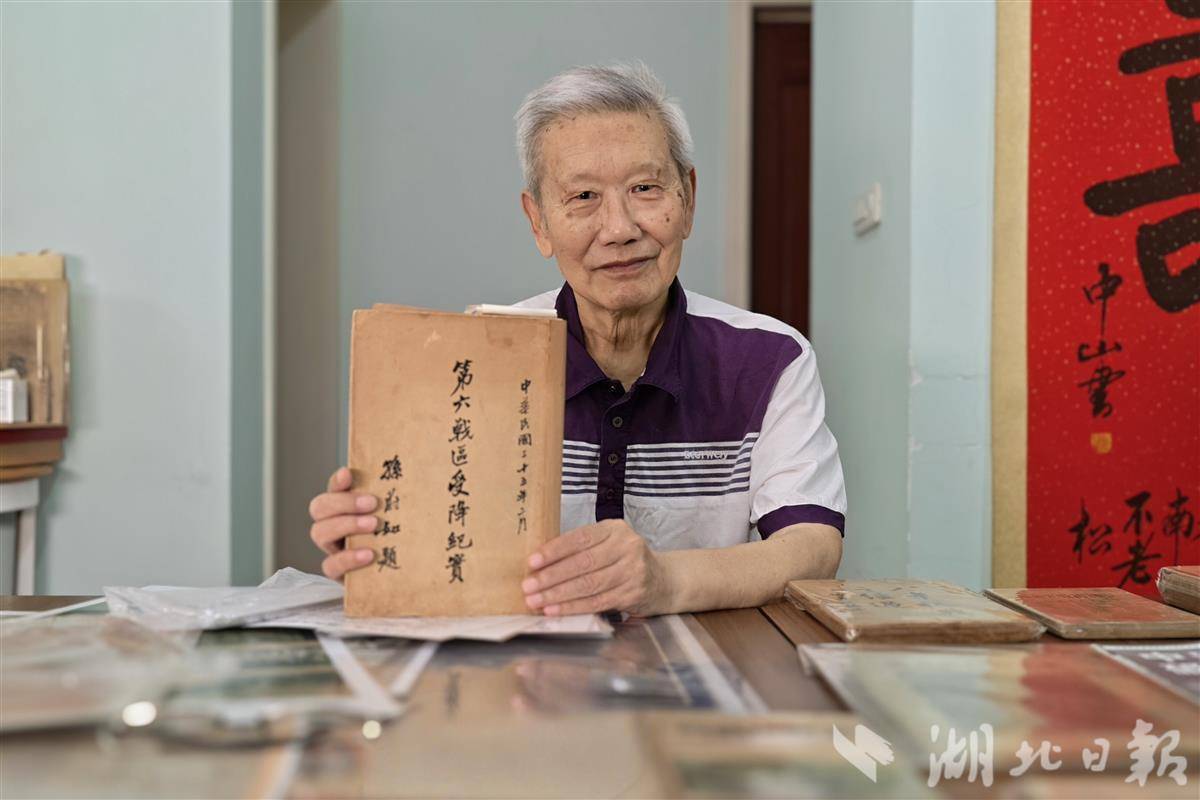 中華民國三十五年二月
第六戰區受降紀實
孫蔚如題
Starway
中山雲
南
不老
松
湖北日報